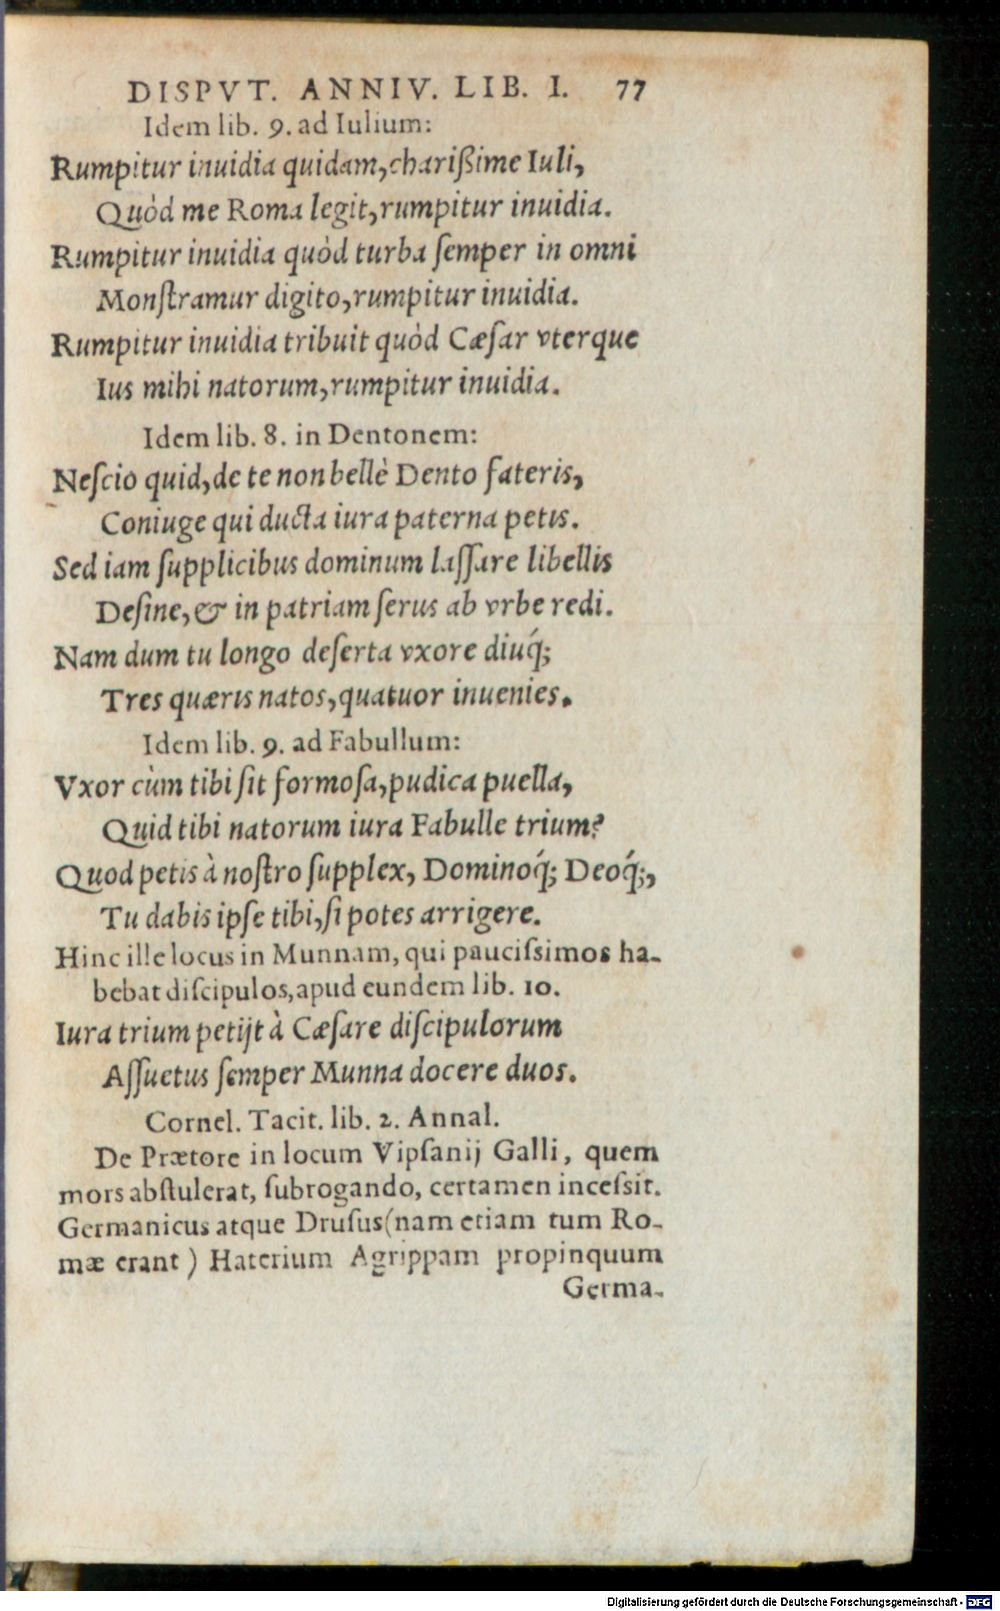 DISPVT. ANNIV. LIB. I. 77
Idem lib. 9. ad Iulium:
Rumpitur inuidia quidam, charißime Iuli,
Quòd me Roma legit, rumpitur inuidia.
Rumpitur inuidia quòd turba ſemper in omni
Monſtramur digito, rumpitur inuidia.
Rumpitur inuidia tribuit quòd Cæſar vterque
Ius mihi natorum, rumpitur inuidia.
Idem lib. 8. in Dentonem:
Neſcio quid, de te non bellè Dento fateris,
Coniuge qui ducta iura paterna petis.
Sed iam ſupplicibus dominum laſſare libellis
Deſine, & in patriam ſerus ab vrbe redi.
Nam dum tu longo deſerta vxore diuq́;
Tres quæris natos, quatuor inuenies.
Idem lib. 9. ad Fabullum:
Vxor cùm tibi ſit formoſa, pudica puella,
Quid tibi natorum iura Fabulle trium?
Quod petis à noſtro ſupplex, Dominoq́; Deoq́;,
Tu dabis ipſe tibi, ſi potes arrigere.
Hinc ille locus in Munnam, qui pauciſsimos ha-
bebat diſcipulos, apud eundem lib. 10.
Iura trium petijt à Cæſare diſcipulorum
Aſſuetus ſemper Munna docere duos.
Cornel. Tacit. lib. 2. Annal.
De Prætore in locum Vipſanij Galli, quem
mors abſtulerat, ſubrogando, certamen inceſsit.
Germanicus atque Druſus (nam etiam tum Ro-
mæ erant) Haterium Agrippam propinquum
Germa-
Digitalisierung gefördert durch die Deutsche Forschungsgemeinschaft - DFG